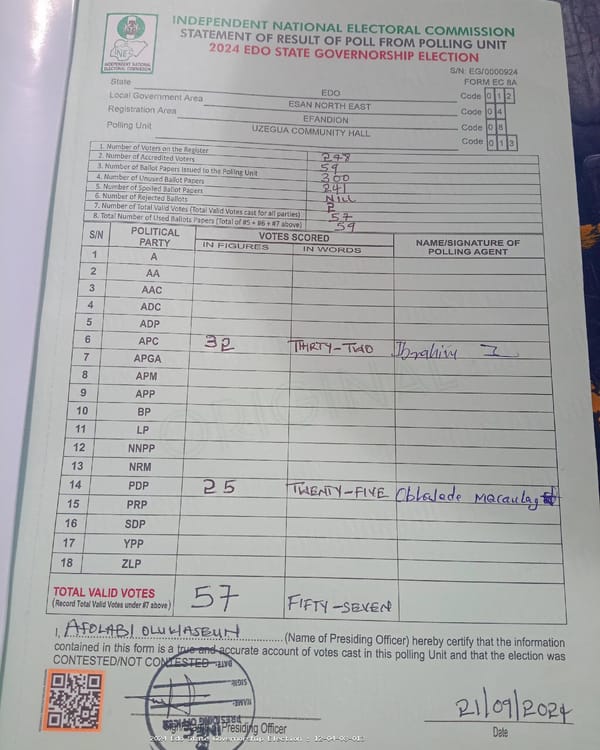 INDEPENDENT NATIONAL ELECTORAL COMMISSION
STATEMENT OF RESULT OF POLL FROM POLLING UNIT
2024 EDO STATE GOVERNORSHIP ELECTION
INEC
INDEPENDENT NATIONAL ELECTORAL COMMISSION
S/N: EG/0000924
FORM EC 8A
State EDO Code 0 1 2
Local Government Area ESAN NORTH EAST Code 0 4
Registration Area EFANDION Code 0 8
Polling Unit UZEGUA COMMUNITY HALL Code 0 1 3
1. Number of Voters on the Register 278
2. Number of Accredited Voters 59
3. Number of Ballot Papers Issued to the Polling Unit 300
4. Number of Unused Ballot Papers 241
5. Number of Spoiled Ballot Papers NILL
6. Number of Rejected Ballots 2
7. Number of Total Valid Votes (Total Valid Votes cast for all parties) 57
8. Total Number of Used Ballots Papers (Total of #5 + #6 + #7 above) 59
S/N POLITICAL PARTY VOTES SCORED NAME/SIGNATURE OF POLLING AGENT
IN FIGURES IN WORDS
1 A
2 AA
3 AAC
4 ADC
5 ADP
6 APC 32 THIRTY-TWO Ibrahim I
7 APGA
8 APM
9 APP
10 BP
11 LP
12 NNPP
13 NRM
14 PDP 25 TWENTY-FIVE
15 PRP
16 SDP
17 YPP
18 ZLP
TOTAL VALID VOTES 57 FIFTY-SEVEN
(Record Total Valid Votes under #7 above)
I, AFOLABI OLUWASEUN (Name of Presiding Officer) hereby certify that the information
contained in this form is a true and accurate account of votes cast in this polling Unit and that the election was
CONTESTED/NOT CONTESTED
DATE:
SIGN:
NAME:
PRESIDING OFFICER
Presiding Officer
21/09/2024
Date
2024 Edo State Governorship Election - 12-04-08-013